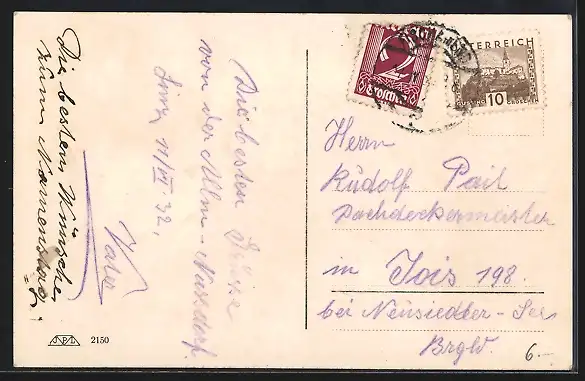 Die besten Wünsche
zum Namenstag.
Vater
Die besten Grüsse
von der Alm - Nussdorf.
11/VI 32.
2
Groschen
ÖSTERREICH
10
GÜSSING GROSCHEN
Herrn
Rudolf Pail
Dachdeckermeister
in Jois 198.
bei Neusiedler-See
Brgld.
6.-
2150